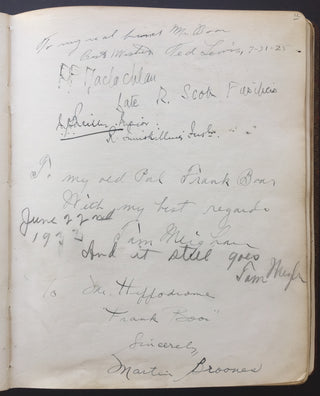 To my real friend Mr Boor
Best Wishes Ted Lewis 7-21-25
R F Maclachlan
Late R. Scots Fusiliers
Major
R. Inniskilling Fusrs. " "
To my old Pal Frank Boor
With my best regards
June 22nd
1923 Tom Meighan
And it still goes
Tom Meighan
To Mr. Hippodrome
Frank Boor
Sincerely,
Martin Broones